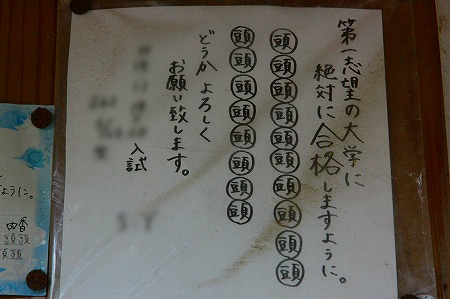 第一志望の大学に
絶対に合格しますように。
頭頭頭頭頭頭頭頭頭頭
頭頭頭頭頭頭頭頭
どうかよろしく
お願い致します。
入試
ように。
由香
頭頭
頭頭